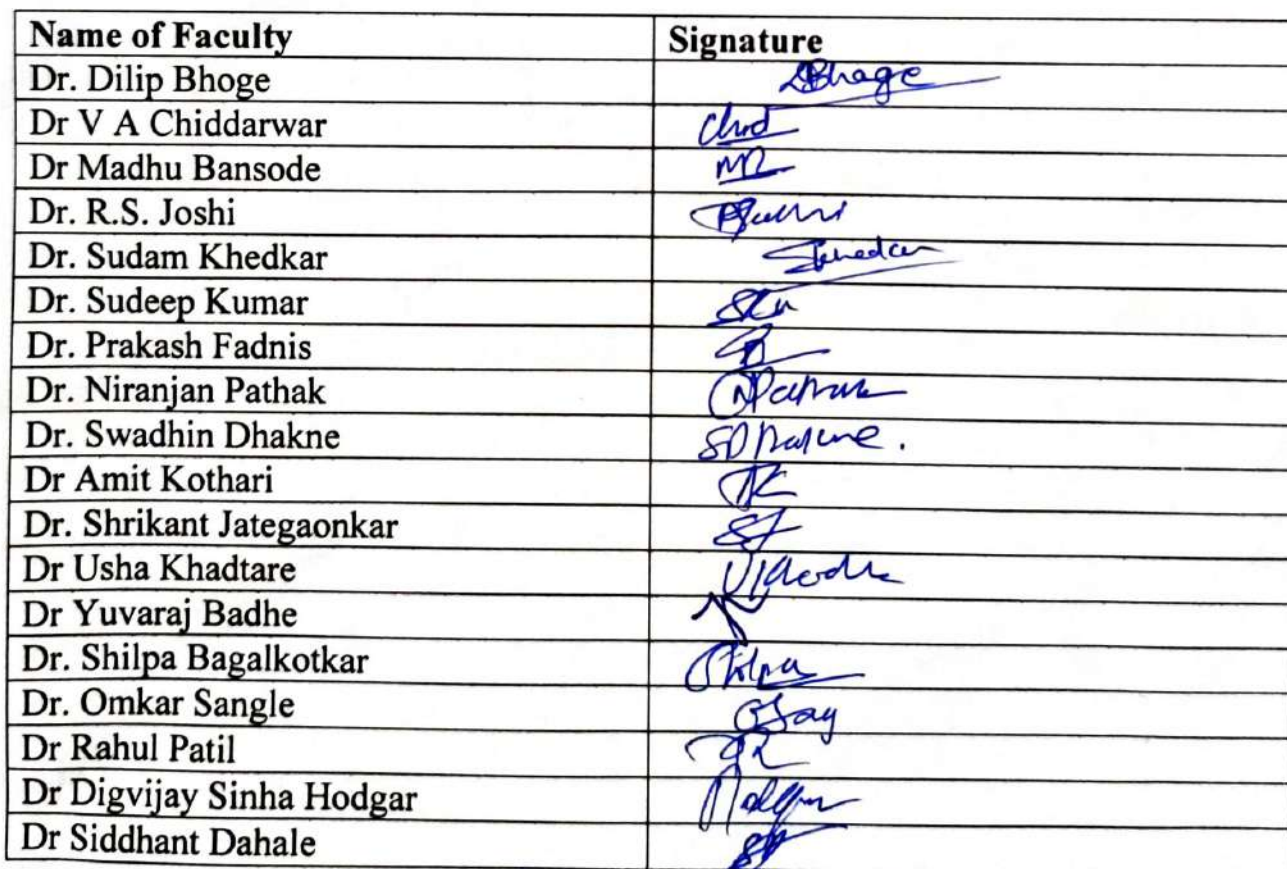 Name of Faculty Signature
Dr. Dilip Bhoge DBhoge
Dr V A Chiddarwar Chid
Dr Madhu Bansode
Dr. R.S. Joshi
Dr. Sudam Khedkar
Dr. Sudeep Kumar
Dr. Prakash Fadnis
Dr. Niranjan Pathak
Dr. Swadhin Dhakne
Dr Amit Kothari AK
Dr. Shrikant Jategaonkar SJ
Dr Usha Khadtare
Dr Yuvaraj Badhe
Dr. Shilpa Bagalkotkar Shilpa
Dr. Omkar Sangle
Dr Rahul Patil
Dr Digvijay Sinha Hodgar
Dr Siddhant Dahale